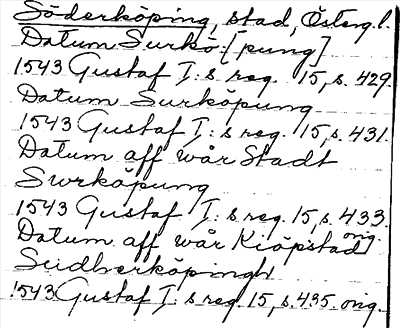 Söderköping, stad, Österg.l.
Datum Surkö [pung]
1543 Gustaf I:s reg. 15, s. 429.
Datum Surköpung
1543 Gustaf I:s reg. 15, s. 431.
Datum aff wår Stadt
Swrköpung
1543 Gustaf I:s reg. 15, s. 433. orig.
Datum aff wår Kiöpstad
Sudherköpingh
1543 Gustaf I:s reg. 15, s. 435. orig.